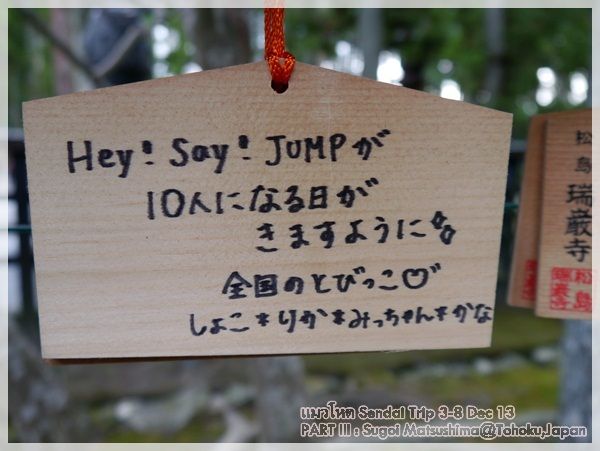 Hey! Say! JUMPが
10人になる日が
きますように
全国のとびっこ♡
しょこ*りか*みっちゃん*かな
松島
瑞巌寺
แมวโหด Sendai Trip 3-8 Dec 13
PART III : Sugoi Matsushima@Tohoku,Japan